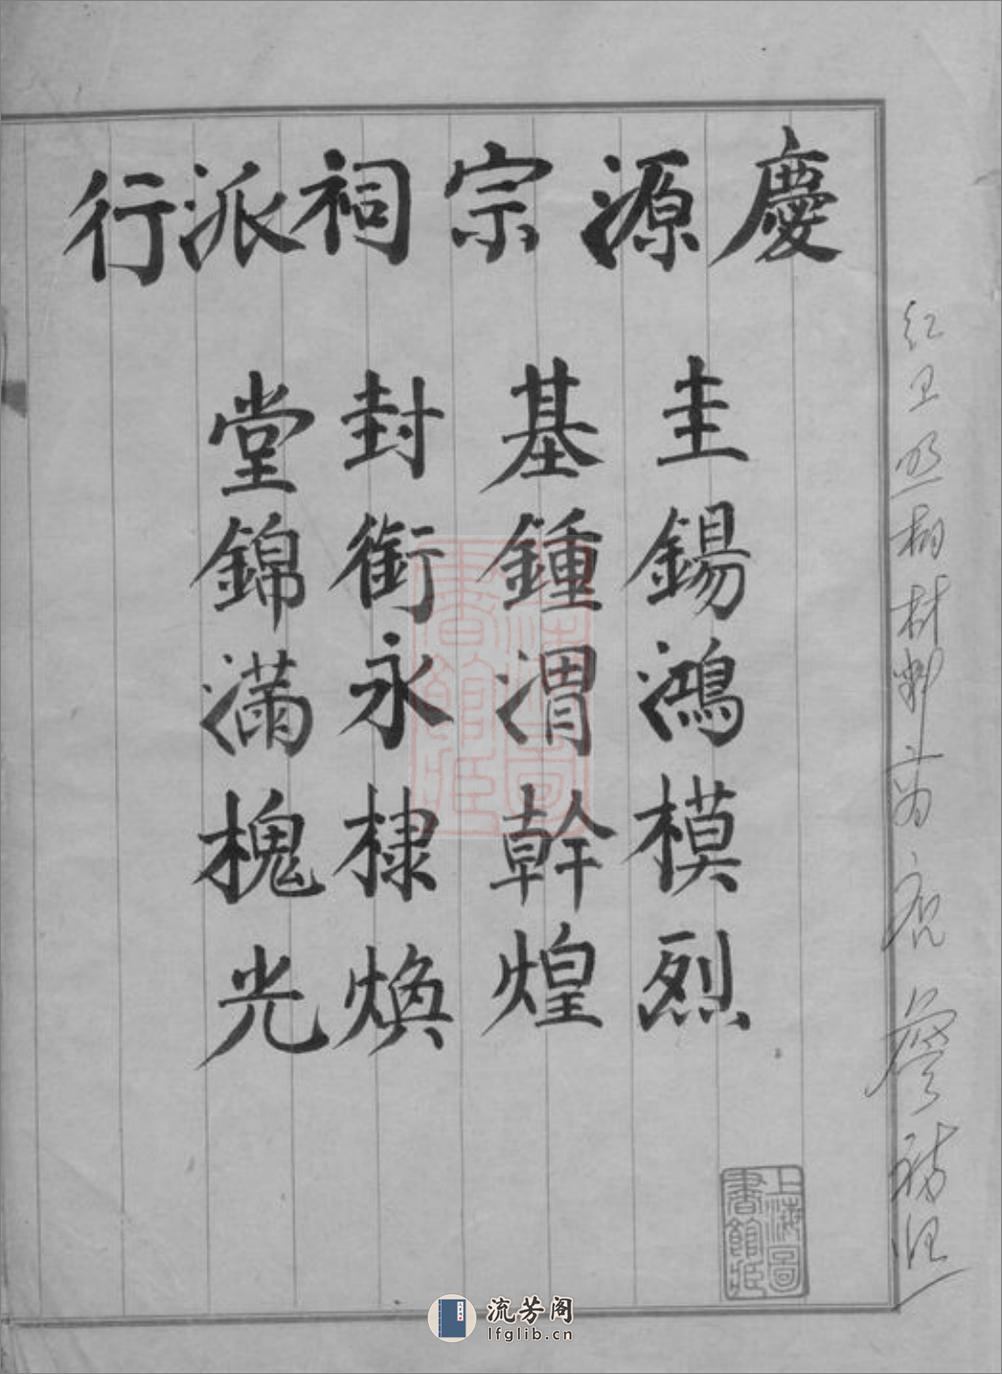 慶源宗祠派行
圭錫鴻模烈
基鍾渭幹煌
封銜永棣煥
堂錦滿槐光
上海圖書館藏
上海圖書館藏
流芳阁
lfglib.cn